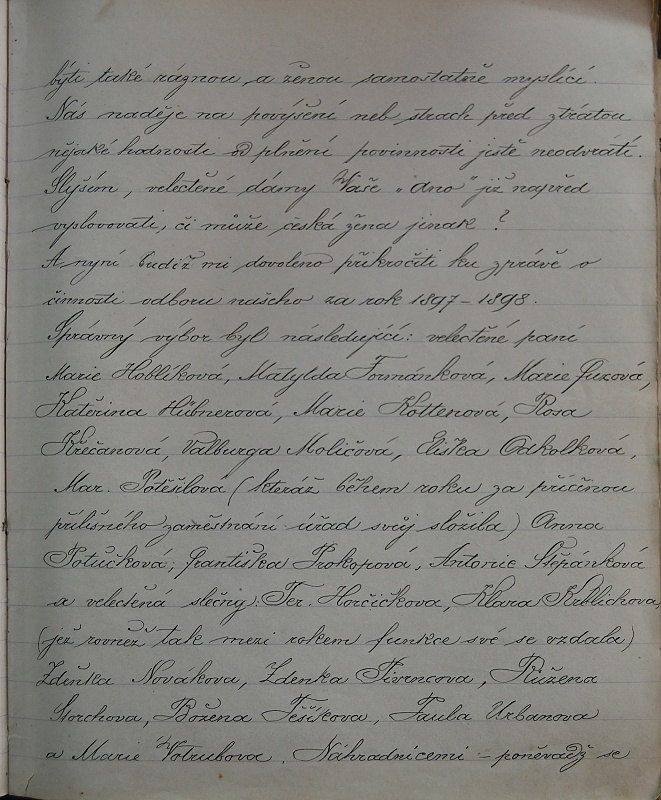 býti také ráznou, a ženou samostatně myslící.
Nás naděje na povýšení neb strach před ztrátou
nějaké hodnosti od plnění povinnosti jistě neodvrátí.
Slyším, velectěné dámy Vaše „ano" již napřed
vyslovovati, či může česká žena jinak?
A nyní budiž mi dovoleno přikročiti ku zprávě o
činnosti odboru našeho za rok 1897-1898.
Správný výbor byl následující: velectěné paní
Marie Hoblíková, Matylda Formánková, Marie Fuxová,
Kateřina Hübnerová, Marie Kottenová, Rosa
Křečanová, Valburga Moličová, Eliška Odkolková,
Mar. Potěšilová (kteráž během roku za příčinou
přílišného zaměstnání úřad svůj složila) Anna
Potůčková, Františka Prokopová, Antonie Štěpánková
a velectěná slečny: Ter. Horčičkova, Klara Kublichova,
(jež rovněž tak mezi rokem funkce své se vzdala)
Zdeňka Novákova, Zdenka Pivncova, Růžena
Storchova, Božena Těšíkova, Paula Urbanova
a Marie Votrubova. Náhradnicemi – poněvadž se